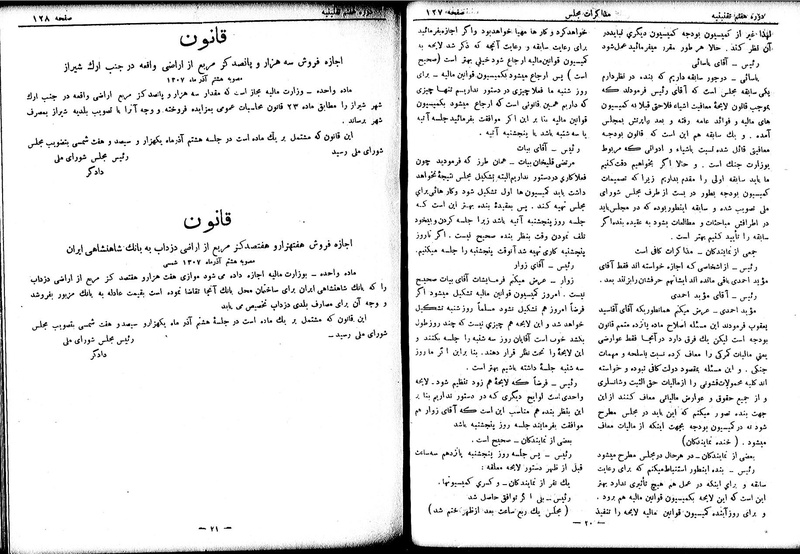 دوره هفتم تقنینیه
مذاکرات مجلس
صفحه ۱۲۷
لهذا غیر از کمیسیون بودجه کمیسیون دیگری نباید در
آن نظر کند. حالا هر طور مقرر میفرمائید عمل شود
رئیس ـ آقای یاسائی
یاسائی ـ در جزو سابقه داریم که بنده در نظر دارم
یکی سابقه ایست که آقای رئیس فرمودند که
بموجب قانون لایحهٔ معافیت اشیاء فلاحتی قبلا به کمیسیون
های مالیه و فوائد عامه رفته و بعد برایرتش بمجلس
آمده. و یک سابقه هم این است که قانون بودجه
معافیتی قائل شده نسبت باشیاء و ادوائی که مربوط
بوزارت جنگ است. و حالا اگر بخواهیم دقت کنیم
ما باید سابقه اولی را مقدم بداریم زیرا که تصمیمات
کمیسیون بودجه بطور در بست از طرف مجلس شورای
ملی تصویب شده و سابقه اینطور بوده که در مجلس باید
در اطرافش مباحثات و مطالعات بشود به عقیده بنده اگر
سابقه را تأیید کنیم بهتر است.
جمعی از نمایندگان ـ مذاکرات کافی است
رئیس ـ از اشخاصی که اجازه خواسته اند فقط آقای
مؤید احمدی باقی مانده اند ایشانهم حرفشان را بزنند بعد.
رئیس ـ آقای مؤید احمدی
مؤید احمدی ـ عرض میکنم همانطوریکه آقای آقاسید
یعقوب فرمودند این مسئله اصلاح ماده پانزده متمم قانون
بودجه است لیکن یک فرق دارد در آنجا فقط عوارضی
یعنی مالیات گمرکی را معاف کرده نسبت باسلحه و مهمات
جنگی. و این مسئله بمقصود دولت کافی نبوده و خواسته
اند کلیه محمولات قشونی را از مالیات حق الثبت و شانسازی
و از جمیع حقوق و عوارض مالیاتی معاف کنند از این
جهت بنده تصور میکنم که این باید در مجلس مطرح
شود نه در کمیسیون بودجه بجهت اینکه از مالیات معاف
میشود. (خنده نمایندگان)
بعضی از نمایندگان ـ در هر حال در مجلس مطرح میشود
رئیس ـ بنده اینطور استنباط میکنم که برای رعایت
سابقه و برای اینکه در عمل هم هیچ تأثیری ندارد بهتر
این است که این لایحه بکمیسیون قوانین مالیه هم برود.
و برای روز آینده کمیسیون قوانین مالیه لایحه را تنقید
خواهد کرد و کار ها مهیا خواهد بود و اگر اجازه بفرمائید
برای رعایت سابقه و رعایت آنچه که ذکر شد لایحه به
کمیسیون قوانین مالیه ارجاع شود خیلی بهتر است (صحیح
است) پس ارجاع میشود بکمیسیون قوانین مالیه ـ برای
روز شنبه ما فعلا چیزی در دستور نداریم تنها چیزی
که داریم همین قانونی است که ارجاع میشود بکمیسیون
قوانین مالیه بنا بر این اگر موافقت بفرمائید جلسه آتیه
یا سه شنبه باشد یا پنجشنبه آتیه.
رئیس ـ آقای بیات
مرتضی قلیخان بیات ـ همان طرز که فرمودید چون
فعلا کاری در دستور نداریم البته تشکیل مجلس نتیجهٔ نخواهد
داشت باید کمیسیون ها اول تشکیل شود و کار هائی برای
مجلس تهیه کنند. پس بعقیدهٔ بنده بهتر این است که
جلسه روز پنجشنبه آتیه باشد زیرا جلسه کردن و بیخود
تلف نمودن وقت بنظر بنده صحیح نیست. اگر تا روز
پنجشنبه کاری تهیه شد آنوقت پنجشنبه را جلسه میکنیم.
رئیس ـ آقای زوار
زوار ـ عرض میکنم فرمایشات آقای بیات صحیح
نیست. امروز کمیسیون قوانین مالیه تشکیل میشود اگر
فرضاً امروز هم تشکیل نشود مسلماً روز شنبه تشکیل
خواهد شد و این لایحه هم چیزی نیست که چند روز طول
بکشد خوب است آقایان روز سه شنبه را جلسه بکنند و
این لایحهٔ را تحت نظر قرار دهند. بنا براین اگر ما روز
سه شنبه جلسه داشته باشیم بهتر است.
رئیس ـ فرضاً که لایحهٔ هم زود تنظیم شود. لایحه
واحدی است لوایح دیگری که در دستور نداریم بنا بر
این بنظر بنده هم مناسب این است که آقای زوار هم
موافقت بفرمایند جلسه روز پنجشنبه باشد
بعضی از نمایندگان ـ صحیح است.
رئیس ـ پس جلسه روز پنجشنبه پانزدهم سه ساعت
قبل از ظهر دستور لایحه معلقه:
یک نفر از نمایندگان ـ و کسری کمیسیونها.
رئیس ـ بلی اگر توافق حاصل شد
(مجلس یک ربع ساعت بعد از ظهر ختم شد)
ـ ۲۰ ـ
دوره هفتم تقنینیه
صفحه ۱۲۸
قانون
اجازه فروش سه هزار و پانصد کز مربع از اراضی واقعه در جنب ارك شیراز
مصوبه هشتم آذر ماه ۱۳۰۷
ماده واحده ـ وزارت مالیه مجاز است که مقدار سه هزار و پانصد کز مربع اراضی واقعه در جنب ارك
شهر شیراز را مطابق ماده ۲۳ قانون محاسبات عمومی بمزایده فروخته و وجه آنرا با تصویب بلدیه شیراز بمصرف
شهر برساند.
این قانون که مشتمل بر یک ماده است در جلسه هشتم آذر ماه یکهزار و سیصد و هفت شمسی بتصویب مجلس
شورای ملی رسید
رئیس مجلس شورای ملی
دادگر
قانون
اجازه فروش هفتهزار و هفتصد کز مربع از اراضی دزداب به بانک شاهنشاهی ایران
مصوبه هشتم آذر ماه ۱۳۰۷ شمسی
ماده واحده ـ بوزارت مالیه اجازه داده می شود موازی هفت هزار و هفتصد کز مربع از اراضی دزداب
را که بانک شاهنشاهی ایران برای ساختمان محل بانک آنجا تقاضا نموده است بقیمت عادله به بانک مزبور بفروشد
و وجه آن برای مصارف بلدی دزداب تخصیص می یابد
این قانون که مشتمل بر یک ماده است در جلسه هشتم آذر ماه یکهزار و سیصد و هفت شمسی بتصویب مجلس
شورای ملی رسید ـ
رئیس مجلس شورای ملی
دادگر
ـ ۲۱ ـ